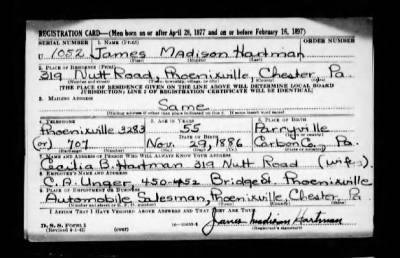 REGISTRATION CARD—(Men born on or after April 28, 1877 and on or before February 16, 1897)
SERIAL NUMBER 1. NAME (Print) ORDER NUMBER
U 1052 James Madison Hartman
(First) (Middle) (Last)
2. PLACE OF RESIDENCE (Print)
319 Nutt Road, Phoenixville, Chester, Pa.
(Number and street) (Town, township, village, or city) (County) (State)
[THE PLACE OF RESIDENCE GIVEN ON THE LINE ABOVE WILL DETERMINE LOCAL BOARD
JURISDICTION; LINE 2 OF REGISTRATION CERTIFICATE WILL BE IDENTICAL]
3. MAILING ADDRESS
Same
[Mailing address if other than place indicated on line 2. If same insert word same]
4. TELEPHONE 5. AGE IN YEARS 6. PLACE OF BIRTH
Phoenixville 3283 55 Parryville
DATE OF BIRTH
(or) 707 Nov. 29, 1886 Carbon Co. Pa.
7. NAME AND ADDRESS OF PERSON WHO WILL ALWAYS KNOW YOUR ADDRESS
G. Hartman 319 Nutt Road (wife)
8. EMPLOYER'S NAME AND ADDRESS
C. A. Unger 450-452 Bridge St. Phoenixville
9. PLACE OF EMPLOYMENT OR BUSINESS
Automobile Salesman, Phoenixville Chester Pa.
(Number and street or R. F. D. number) (Town) (County) (State)
I AFFIRM THAT I HAVE VERIFIED ABOVE ANSWERS AND THAT THEY ARE TRUE.
D. S. S. Form 1
(Revised 4-1-42) (over)
James Madison Hartman
(Registrant's signature)